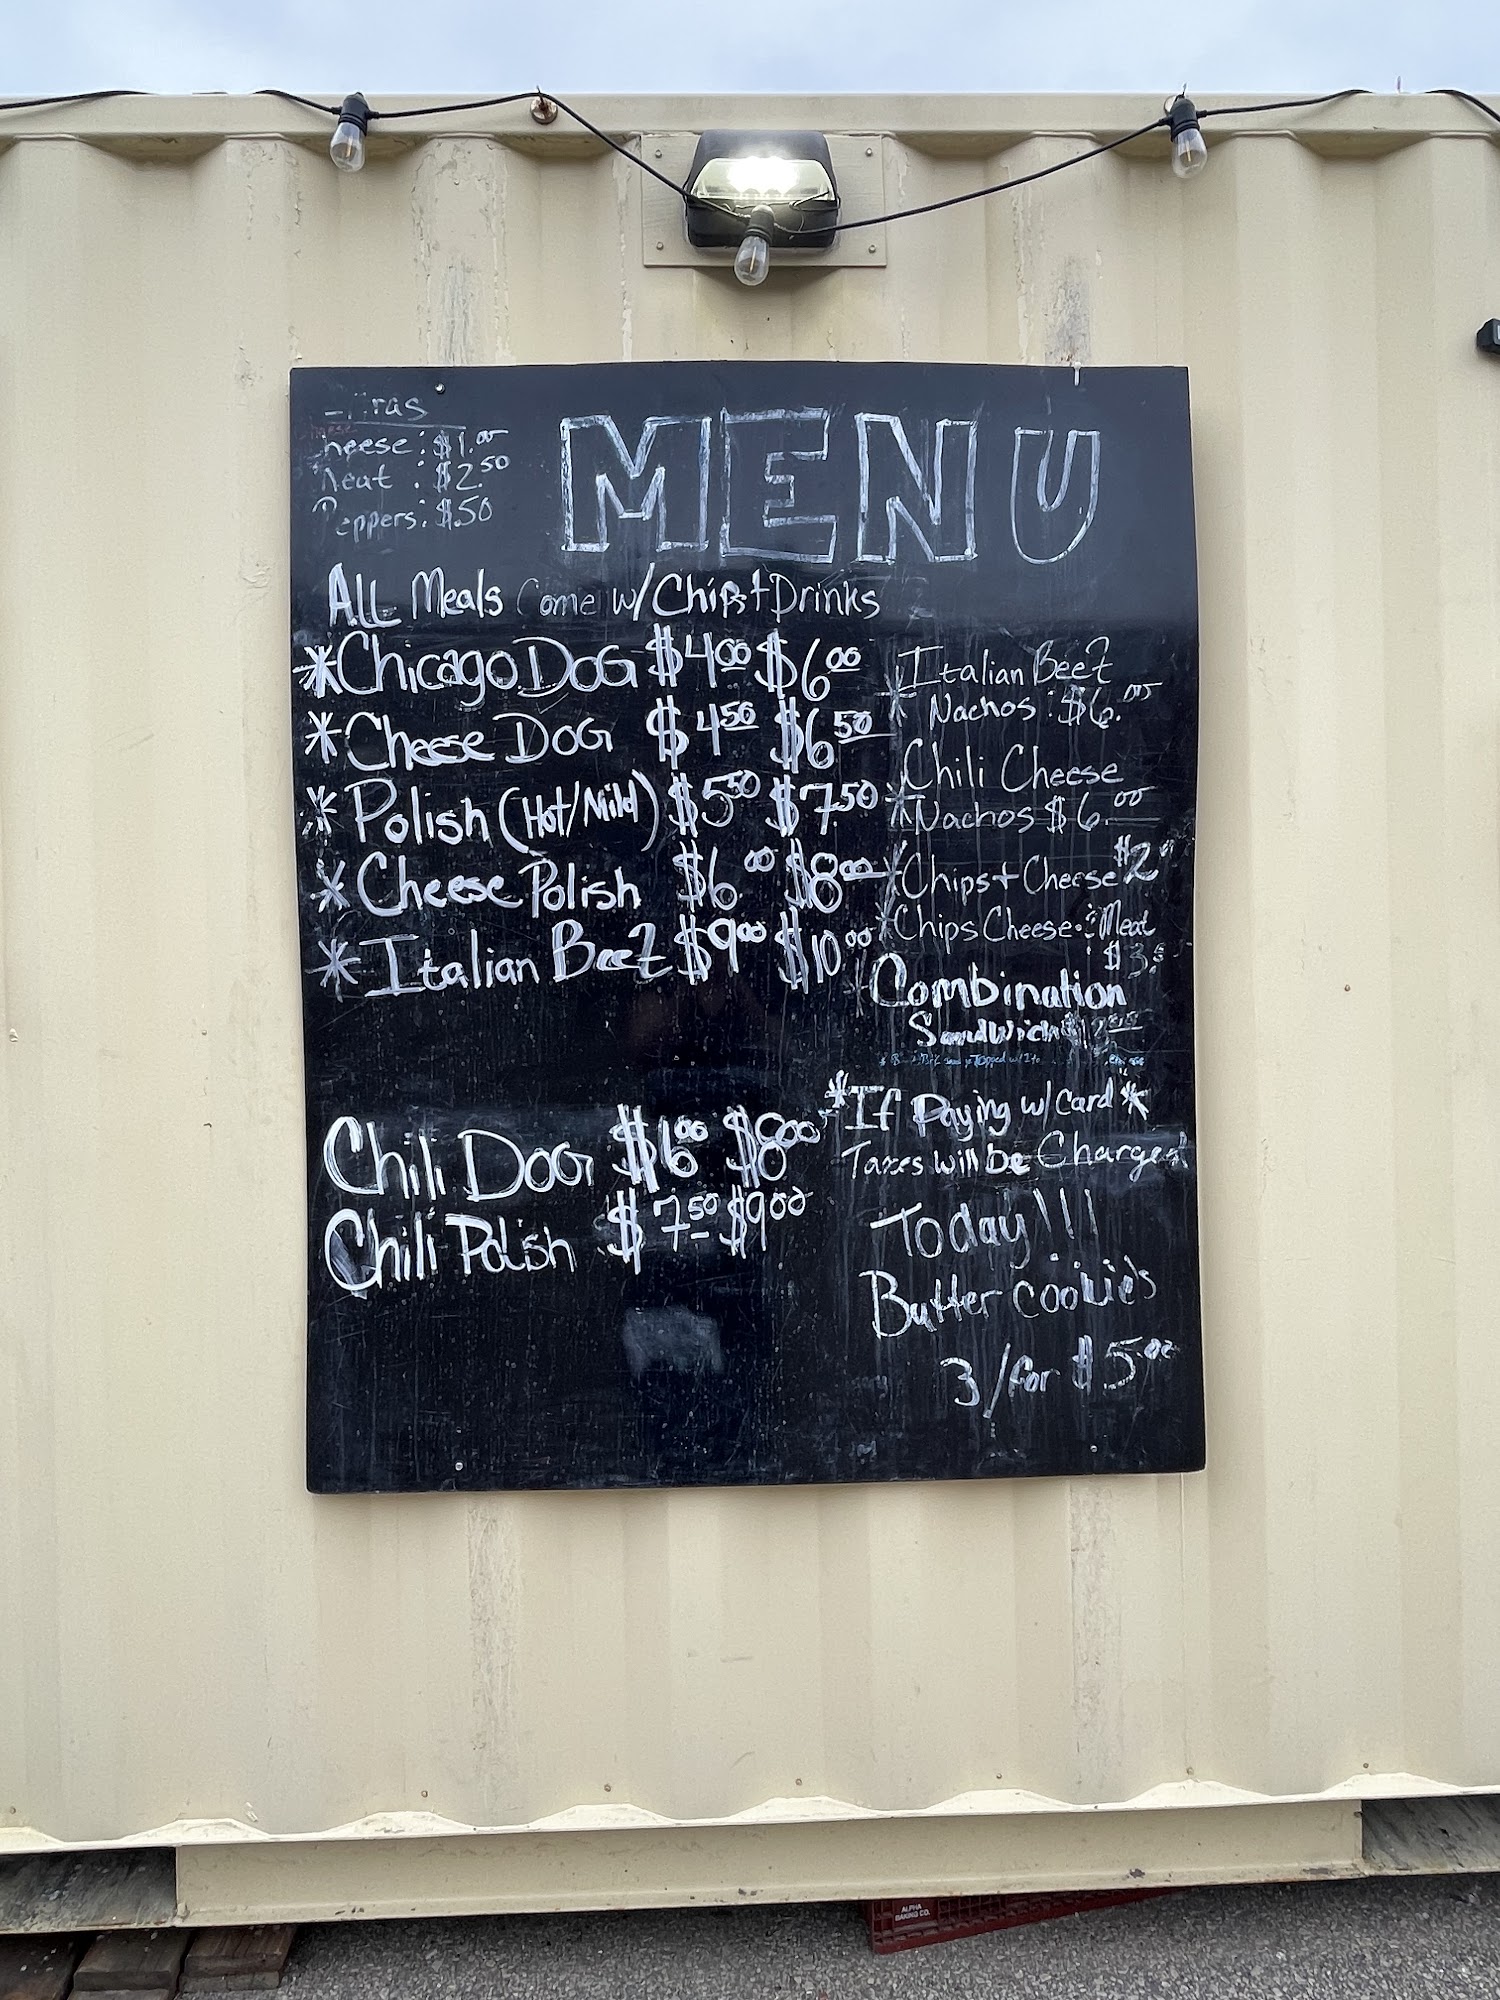 Cheese: $1.00
Meat : $2.50
Peppers: $.50
MENU
ALL Meals Come w/ Chips + Drinks
*Chicago DOG $4.00 $6.00
*Cheese DOG $4.50 $6.50
*Polish (Hot/Mild) $5.50 $7.50
*Cheese Polish $6.00 $8.00
*Italian Beef $9.00 $10.00
Chili DOG $6.00 $8.00
Chili Polish $7.50 $9.00
*Italian Beef
Nachos : $6.00
*Chili Cheese
Nachos $6.00
*Chips + Cheese $2.
*Chips Cheese Meat
$3.
*Combination
Sandwich
Topped w/
*If Paying w/ Card*
Taxes will be Charged
Today!!!
Butter cookies
3/for $5.00
ALPHA
BAKING CO.